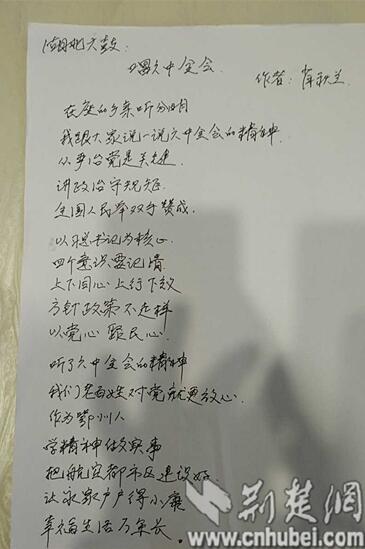 湖北大鼓：
唱六中全会
作者：肖秋兰
在座的乡亲听分明
我跟大家说一说六中全会的精神
从严治党是关键
讲政治守规矩
全国人民举双手赞成
以习总书记为核心
四个意识要记清
上下同心上行下效
方针政策不走样
以党心聚民心
听了六中全会的精神
我们老百姓对党就更放心
作为鄂州人
学精神做实事
把航空都市区建设好
让家家户户得小康
幸福生活万年长。
荆楚网
www.cnhubei.com